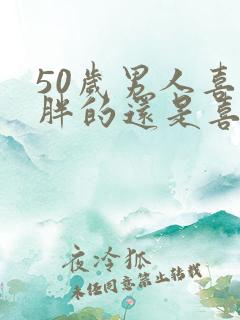 50歲男人喜
胖的還是喜
夜泠狐
未经同意禁止转载